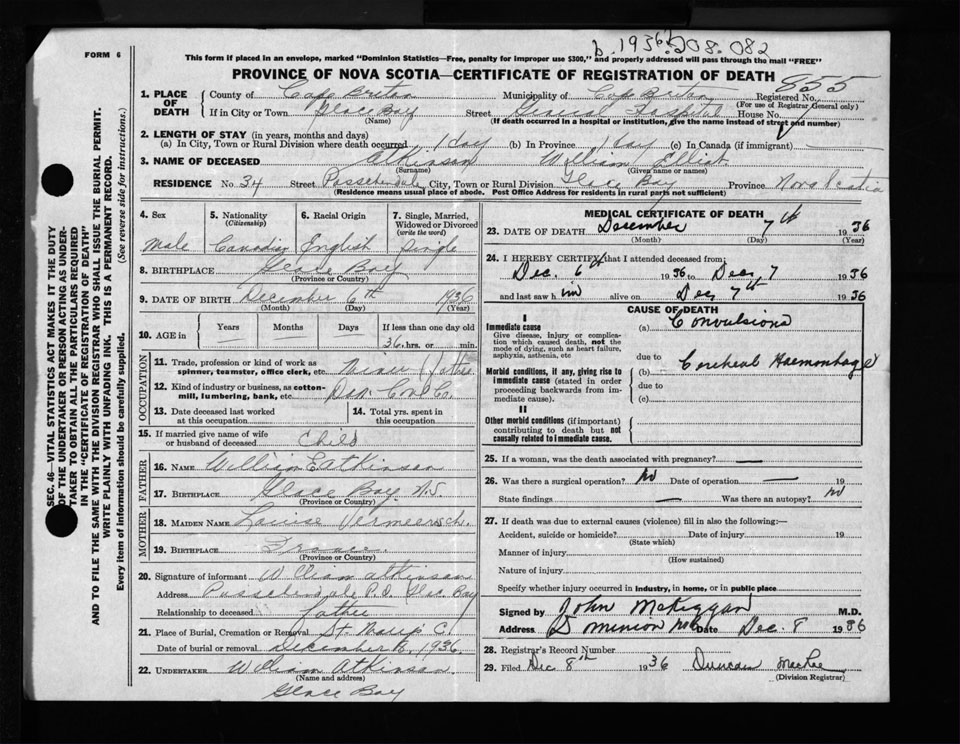 b. 1936. 208. 082
FORM 6
This form if placed in an envelope, marked "Dominion Statistics—Free, penalty for improper use $300," and properly addressed will pass through the mail "FREE"
PROVINCE OF NOVA SCOTIA—CERTIFICATE OF REGISTRATION OF DEATH
855
1. PLACE OF DEATH
County of Cape Breton Municipality of Cape Breton Registered No.
(For use of Registrar General only)
If in City or Town Glace Bay Street General Hospital House No.
(Name) (If death occurred in a hospital or institution, give the name instead of street and number)
2. LENGTH OF STAY (in years, months and days)
(a) In City, Town or Rural Division where death occurred 1 day (b) In Province 1 day (c) In Canada (if immigrant) —
3. NAME OF DECEASED Atkinson William Elliot
(Surname) (Given name or names)
RESIDENCE No. 34 Street Passchendale City, Town or Rural Division Glace Bay Province Nova Scotia
(Residence means usual place of abode. Post Office Address for residents in rural parts not sufficient)
4. Sex
Male
5. Nationality
(Citizenship)
Canadian
6. Racial Origin
English
7. Single, Married, Widowed or Divorced
(write the word)
Single
8. BIRTHPLACE Glace Bay
(Province or Country)
9. DATE OF BIRTH December 6th 1936
(Month) (Day) (Year)
10. AGE in
Years Months Days If less than one day old
— — — 36 hrs. or min.
OCCUPATION
11. Trade, profession or kind of work as spinner, teamster, office clerk, etc. Miner (father
12. Kind of industry or business, as cotton-mill, lumbering, bank, etc. Dom. Coal Co.
13. Date deceased last worked at this occupation
14. Total yrs. spent in this occupation
15. If married give name of wife or husband of deceased Child
FATHER
16. NAME William E Atkinson
17. BIRTHPLACE Glace Bay N.S.
(Province or Country)
MOTHER
18. MAIDEN NAME Louise Vermeersch.
19. BIRTHPLACE France.
(Province or Country)
20. Signature of informant William Atkinson
Address Passchendale P.O. Glace Bay
Relationship to deceased father
21. Place of Burial, Cremation or Removal St. C.
Date of burial or removal December 1936.
22. UNDERTAKER William Atkinson.
(Name and address)
Glace Bay
MEDICAL CERTIFICATE OF DEATH
23. DATE OF DEATH December 7th 1936
(Month) (Day) (Year)
24. I HEREBY CERTIFY that I attended deceased from:
Dec. 6th 1936 to Dec 7 1936
and last saw him alive on Dec 7th 1936
CAUSE OF DEATH
I
Immediate cause
Give disease, injury or complication which caused death, not the mode of dying, such as heart failure, asphyxia, asthenia, etc
(a) Convulsions
due to
Morbid conditions, if any, giving rise to immediate cause (stated in order proceeding backwards from immediate cause).
(b) Cerebral Haemorrhage
due to
(c)
II
Other morbid conditions (if important) contributing to death but not causally related to immediate cause.
25. If a woman, was the death associated with pregnancy? —
26. Was there a surgical operation? no Date of operation — 19
State findings — Was there an autopsy? no
27. If death was due to external causes (violence) fill in also the following:—
Accident, suicide or homicide? Date of injury 19
(State which)
Manner of injury
(How sustained)
Nature of injury
Specify whether injury occurred in industry, in home, or in public place
Signed by John McKiggan M.D.
Address Dominion Date Dec. 8 1936
28. Registrar's Record Number
29. Filed Dec 8th 1936 Duncan MacRae
(Division Registrar)
SEC. 46—VITAL STATISTICS ACT MAKES IT THE DUTY
OF THE UNDERTAKER OR PERSON ACTING AS UNDER-
TAKER TO OBTAIN ALL THE PARTICULARS REQUIRED
IN THE "CERTIFICATE OF REGISTRATION OF DEATH"
AND TO FILE THE SAME WITH THE DIVISION REGISTRAR WHO SHALL ISSUE THE BURIAL PERMIT.
WRITE PLAINLY WITH UNFADING INK. THIS IS A PERMANENT RECORD.
Every item of information should be carefully supplied. (See reverse side for instructions.)